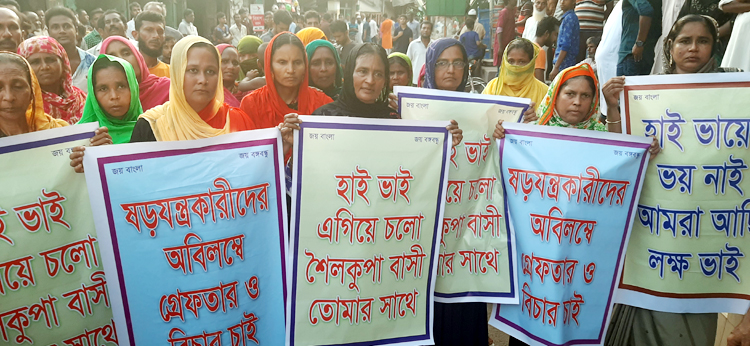 ই ভাই
গিয়ে চলো
লকুপা বাসী
মার সাথে
জয় বাংলা
জয় বঙ্গবন্ধু
ষড়যন্ত্রকারীদের
অবিলম্বে
গ্রেফতার ও
বিচার চাই
জয় বাংলা
জয় বঙ্গবন্ধু
হাই ভাই
এগিয়ে চলো
শৈলকুপা বাসী
তোমার সাথে
ভাই
চলো
বাসী
সাথে
জয় বাংলা
জয় বঙ্গবন্ধু
ষড়যন্ত্রকারীদের
অবিলম্বে
গ্রেফতার ও
বিচার চাই
জয় বাংলা
হাই ভায়ে
ভয় নাই
আমরা আছি
লক্ষ ভাই